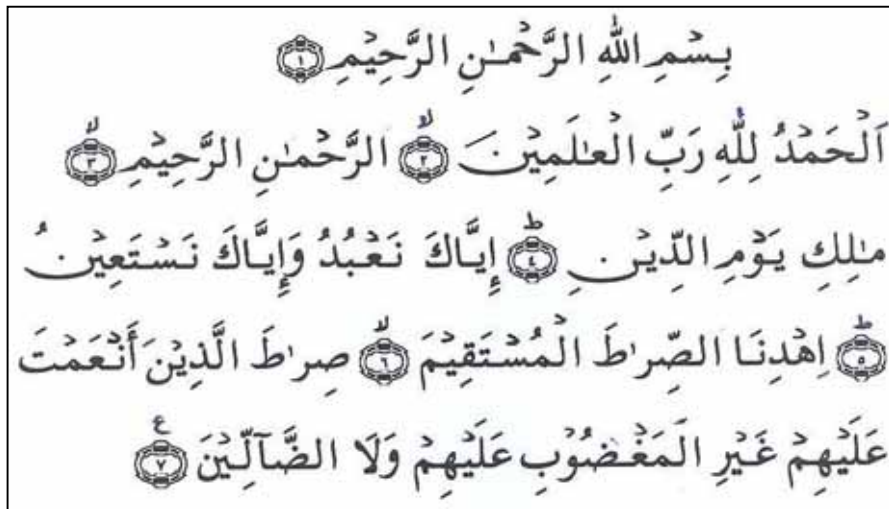 بِسْمِ اللهِ الرَّحْمٰنِ الرَّحِيْمِ ۝١
اَلْحَمْدُ لِلّٰهِ رَبِّ الْعٰلَمِيْنَ ۝٢ۙ الرَّحْمٰنِ الرَّحِيْمِ ۝٣ۙ
مٰلِكِ يَوْمِ الدِّيْنِ ۝٤ؕ إِيَّاكَ نَعْبُدُ وَإِيَّاكَ نَسْتَعِيْنُ
۝٥ؕ اِهْدِنَا الصِّرٰطَ الْمُسْتَقِيْمَ ۝٦ۙ صِرٰطَ الَّذِيْنَ أَنْعَمْتَ
عَلَيْهِمْ غَيْرِ الْمَغْضُوْبِ عَلَيْهِمْ وَلَا الضَّآلِّيْنَ ۝٧ ع